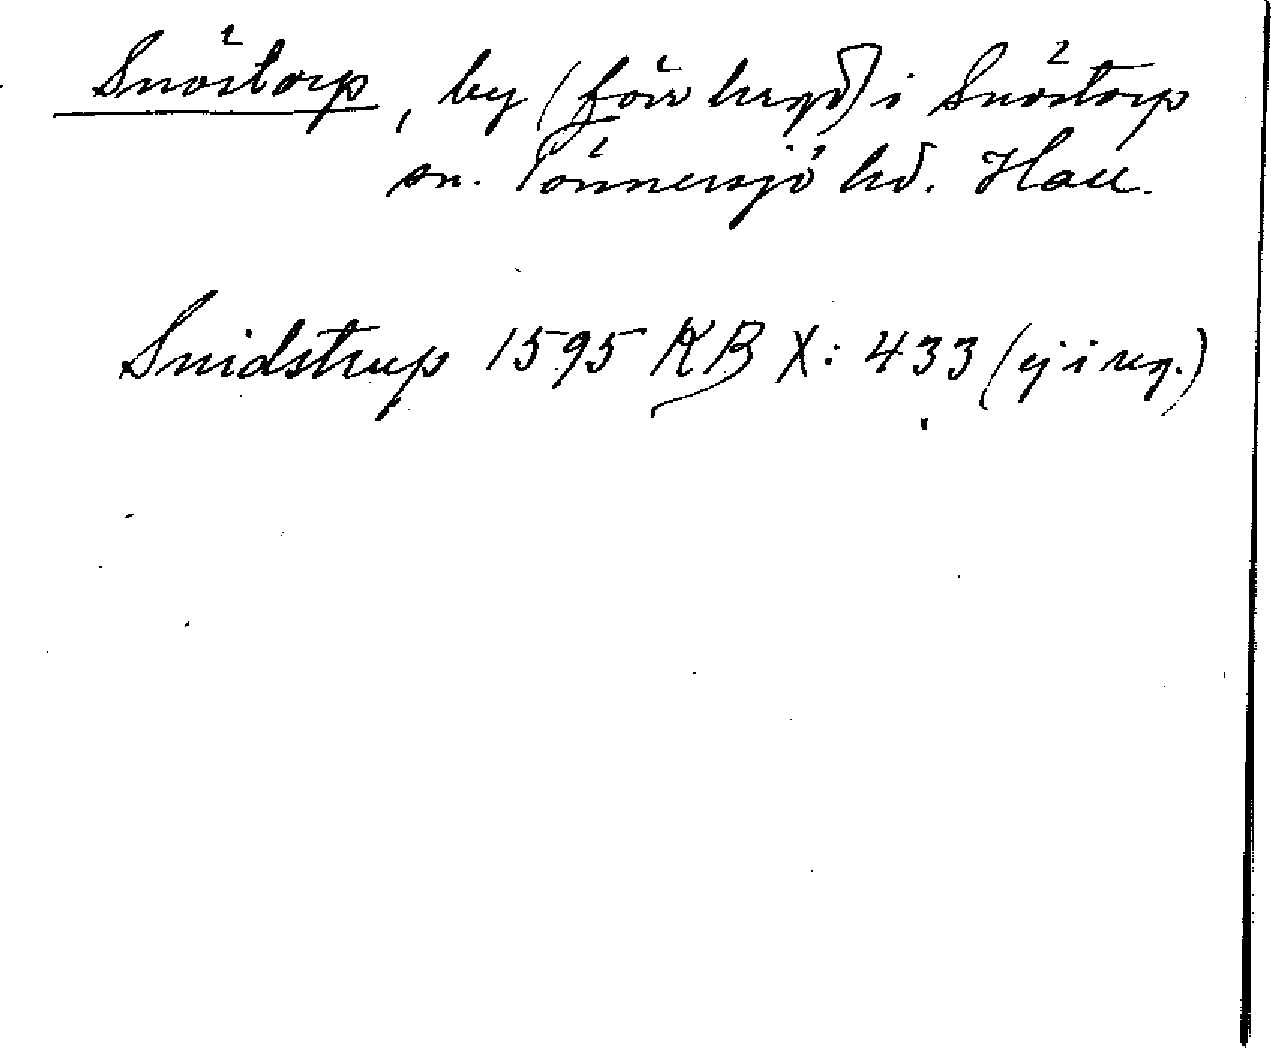 Snöstorp, by (förr hrgd) i Snöstorp
sn. Tönnersjö hd. Hall.
Snidstrup 1595 KB X: 433 (ej i reg.)